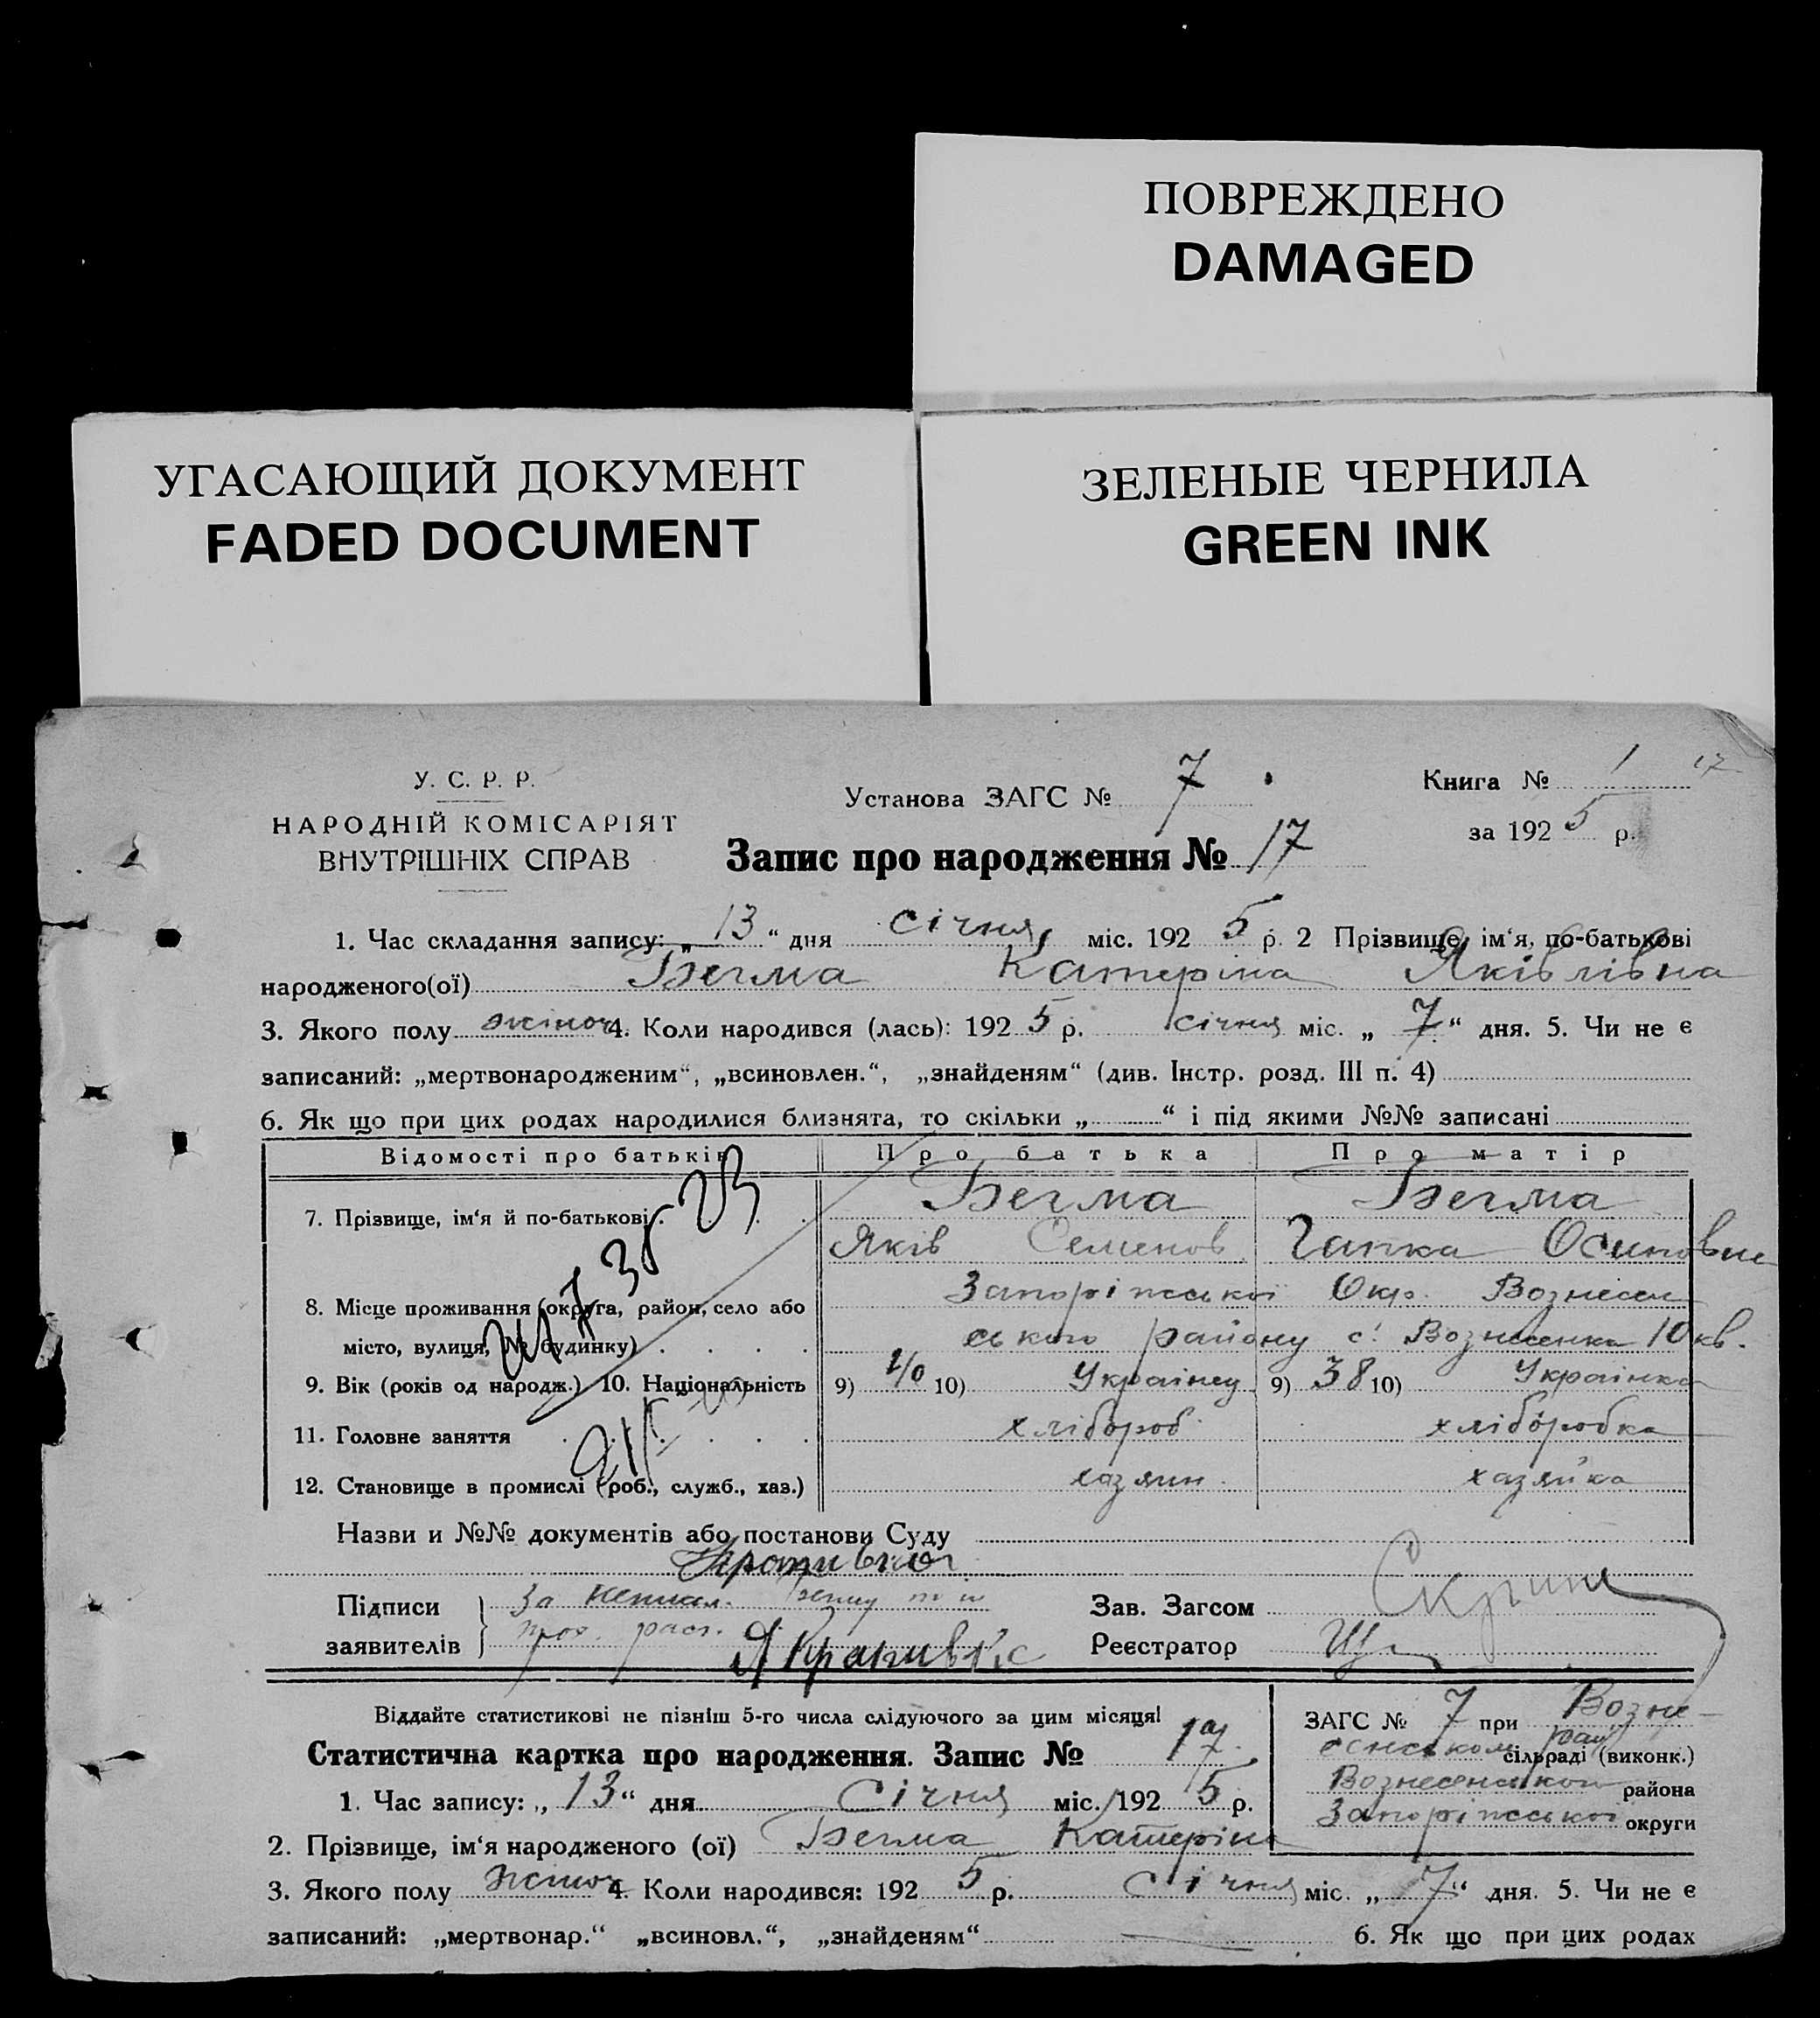 ПОВРЕЖДЕНО
DAMAGED
УГАСАЮЩИЙ ДОКУМЕНТ
FADED DOCUMENT
ЗЕЛЕНЫЕ ЧЕРНИЛА
GREEN INK
У. С. Р. Р.
НАРОДНІЙ КОМІСАРІЯТ
ВНУТРІШНІХ СПРАВ
Установа ЗАГС № 7
Книга № 1 17
за 1925 р.
Запис про народження № 17
1. Час складання запису: „13“ дня січня міс. 1925 р. 2 Прізвище, ім‘я, по-батькові
народженого(ої) Бегма Катеріна Яківлівна
3. Якого полу жіноч. 4. Коли народився (лась): 1925 р. січня міс. „7“ дня. 5. Чи не є
записаний: „мертвонародженим“, „всиновлен.“, „знайденям“ (див. Інстр. розд. III п. 4)
6. Як що при цих родах народилися близнята, то скільки „ “ і під якими №№ записані
Відомості про батьків Про батька Про матір
7. Прізвище, ім‘я й по-батькові Бегма Бегма
Яків Семенов Гапка Осиповна
8. Місце проживання (округа, район, село або Запоріжської Окр. Вознесен
місто, вулиця, № будинку) ського району с. Вознесенка 10 кв.
9. Вік (років од народж.) 10. Національність 9) 40 10) Українец 9) 38 10) Українка
11. Головне заняття хлібороб хліборобка
12. Становище в промислі (роб., служб., хаз.) хазяин хазяйка
Назви и №№ документів або постанови Суду
Підписи За
заявителів
Зав. Загсом
Реєстратор
Віддайте статистикові не пізніш 5-го числа слідуючого за цим місяця!
Статистична картка про народження. Запис № 17
ЗАГС № 7 при Возне-
сенськом рай сільраді (виконк.)
Вознесенського района
Запоріжської округи
1. Час запису: „13“ дня Січня міс. 1925 р.
2. Прізвище, ім‘я народженого (ої) Бегма Катеріна
3. Якого полу жіноч 4. Коли народився: 1925 р. січня міс. „7“ дня. 5. Чи не є
записаний: „мертвонар.“ „всиновл.“, „знайденям“ 6. Як що при цих родах